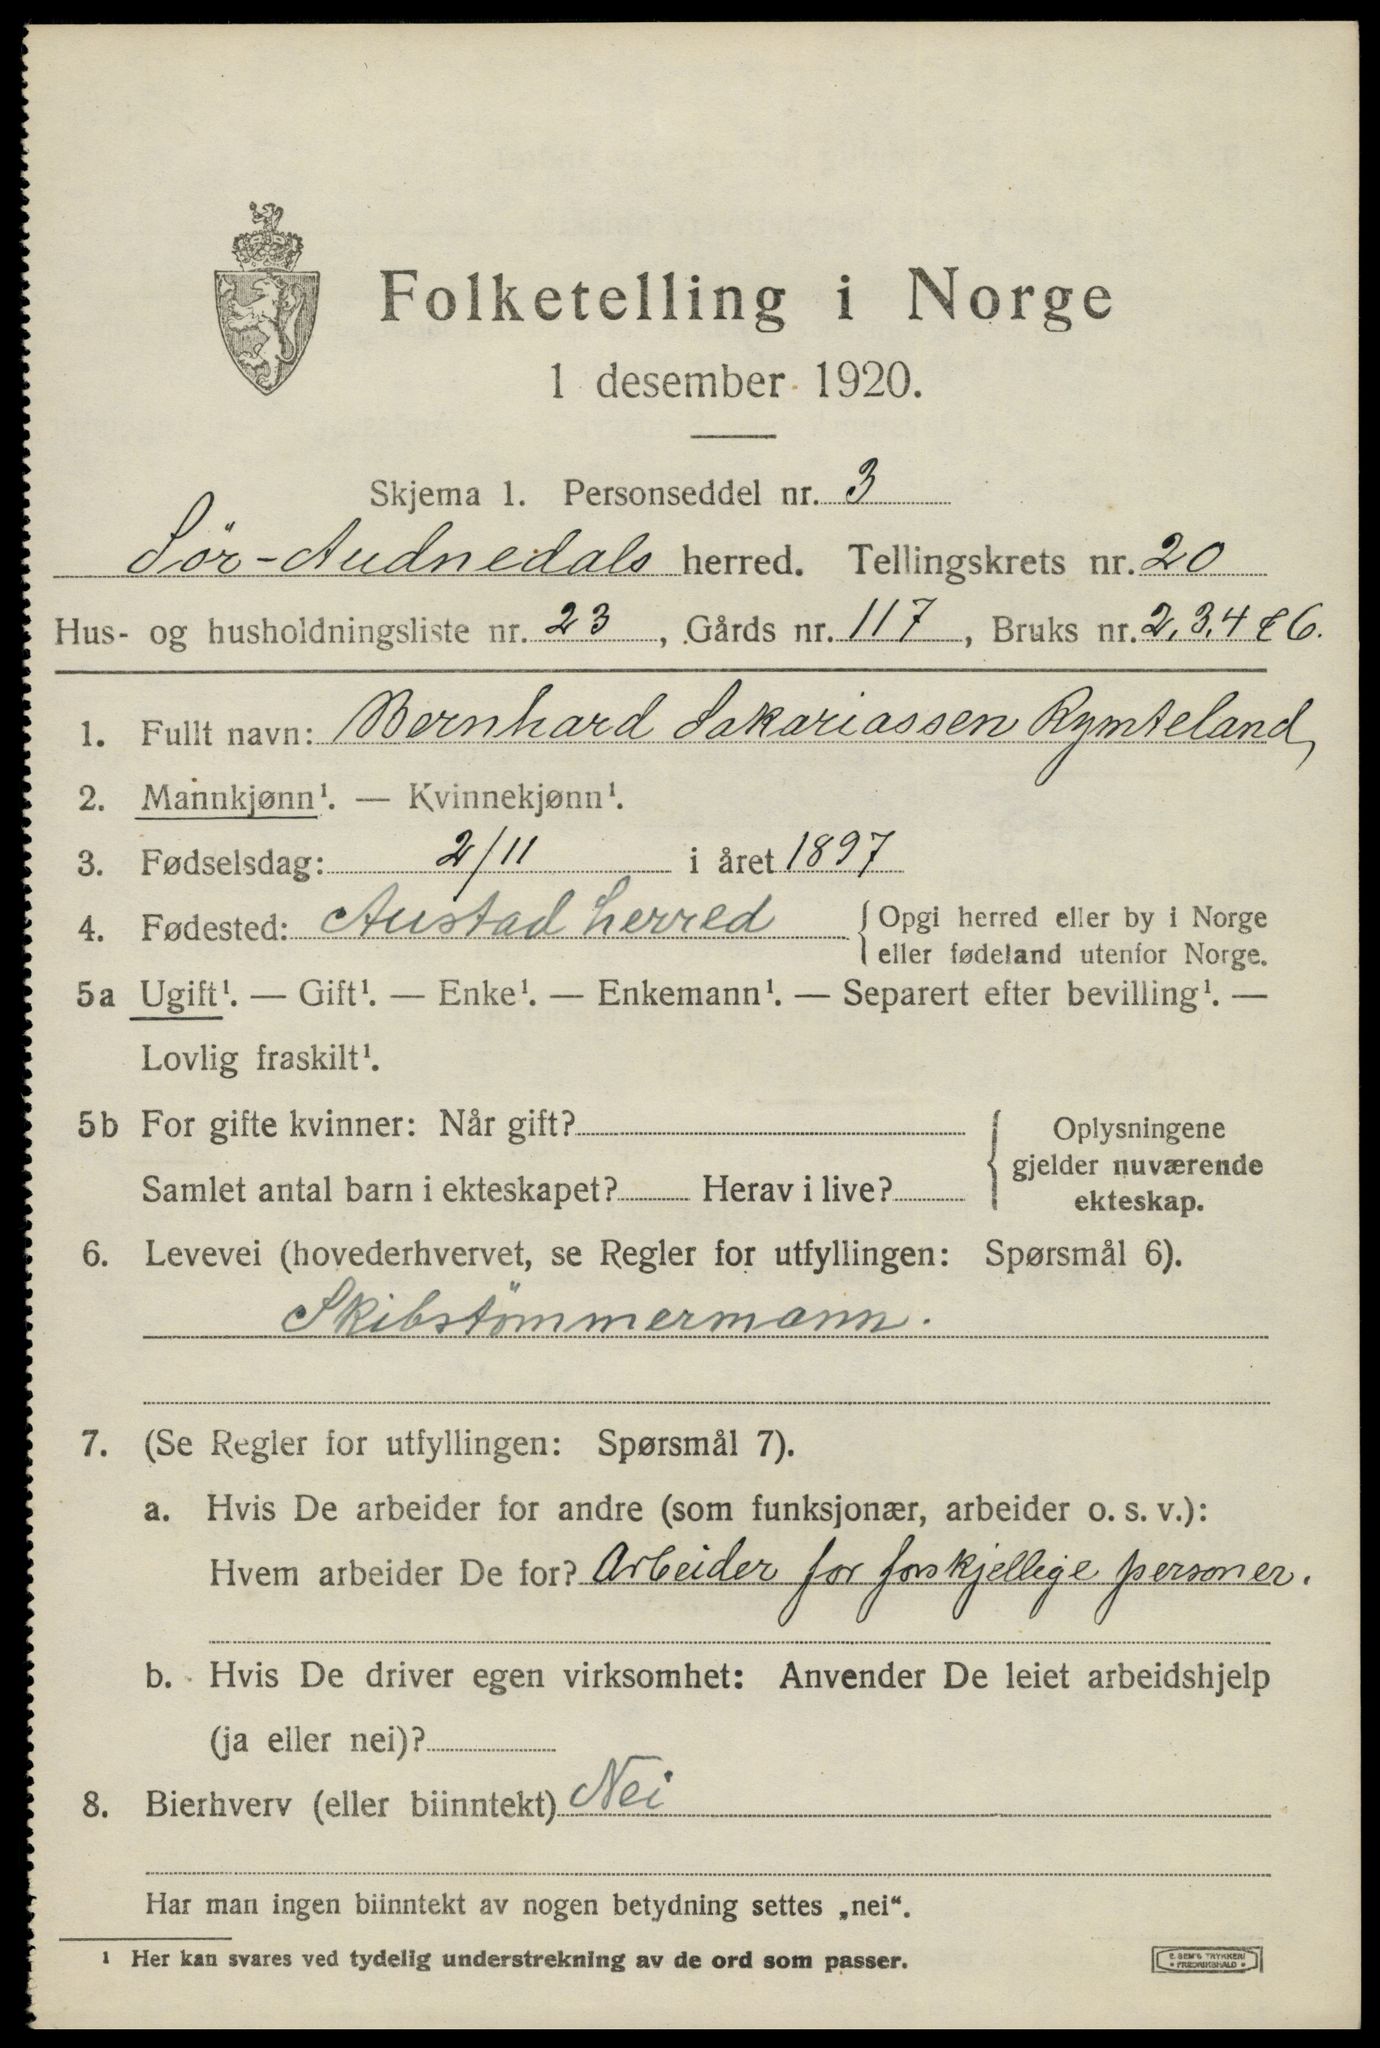 Folketelling i Norge
1 desember 1920.
Skjema 1. Personseddel nr. 3
Sör-Audnedals herred. Tellingskrets nr. 20
Hus- og husholdningsliste nr. 23, Gårds nr. 117, Bruks nr. 2, 3, 4 & 6.
1. Fullt navn: Bernhard Sakariassen Rymteland
2. Mannkjønn¹. — Kvinnekjønn¹.
3. Fødselsdag: 2/11 i året 1897
4. Fødested: Austad herred { Opgi herred eller by i Norge
eller fødeland utenfor Norge.
5a Ugift¹. — Gift¹. — Enke¹. — Enkemann¹. — Separert efter bevilling¹. —
Lovlig fraskilt¹.
5b For gifte kvinner: Når gift? { Oplysningene
gjelder nuværende
Samlet antal barn i ekteskapet? Herav i live?
ekteskap.
6. Levevei (hovederhvervet, se Regler for utfyllingen: Spørsmål 6).
Skibstömmermann.
7. (Se Regler for utfyllingen: Spørsmål 7).
a. Hvis De arbeider for andre (som funksjonær, arbeider o. s. v.):
Hvem arbeider De for? Arbeider for forskjellige personer.
b. Hvis De driver egen virksomhet: Anvender De leiet arbeidshjelp
(ja eller nei)?
8. Bierhverv (eller biinntekt) Nei
Har man ingen biinntekt av nogen betydning settes „nei“.
¹ Her kan svares ved tydelig understrekning av de ord som passer.
E. SEM'S TRYKKERI
• FREDRIKSHALD •